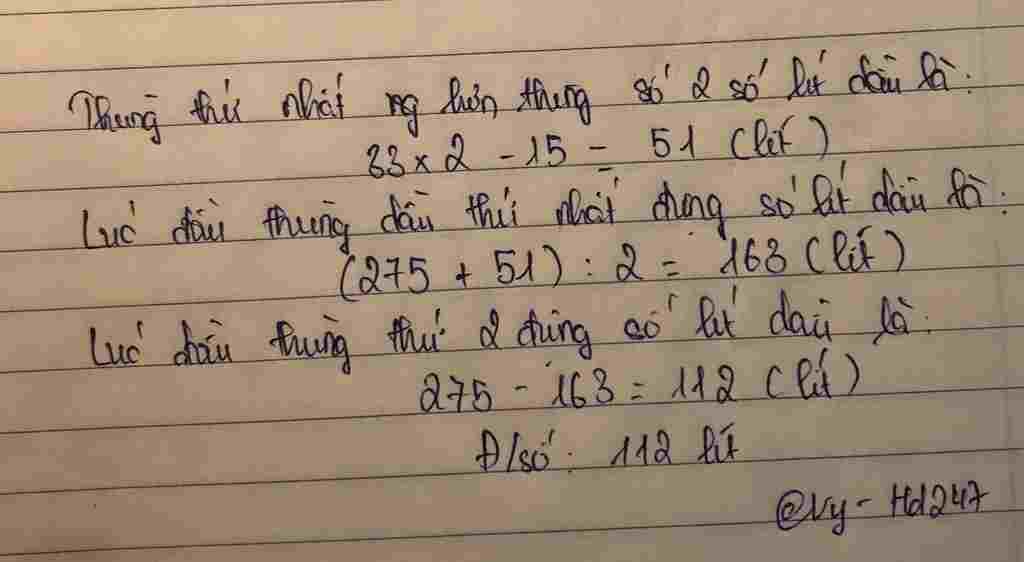 Thùng thứ nhất ng hơn thùng số 2 số lít dầu là:
33 × 2 - 15 = 51 (lít)
Lúc đầu thùng dầu thứ nhất đựng số lít dầu là:
(275 + 51) : 2 = 163 (lít)
Lúc đầu thùng thứ 2 đựng số lít dầu là:
275 - 163 = 112 (lít)
Đ/số: 112 lít
@Vy - Hd247